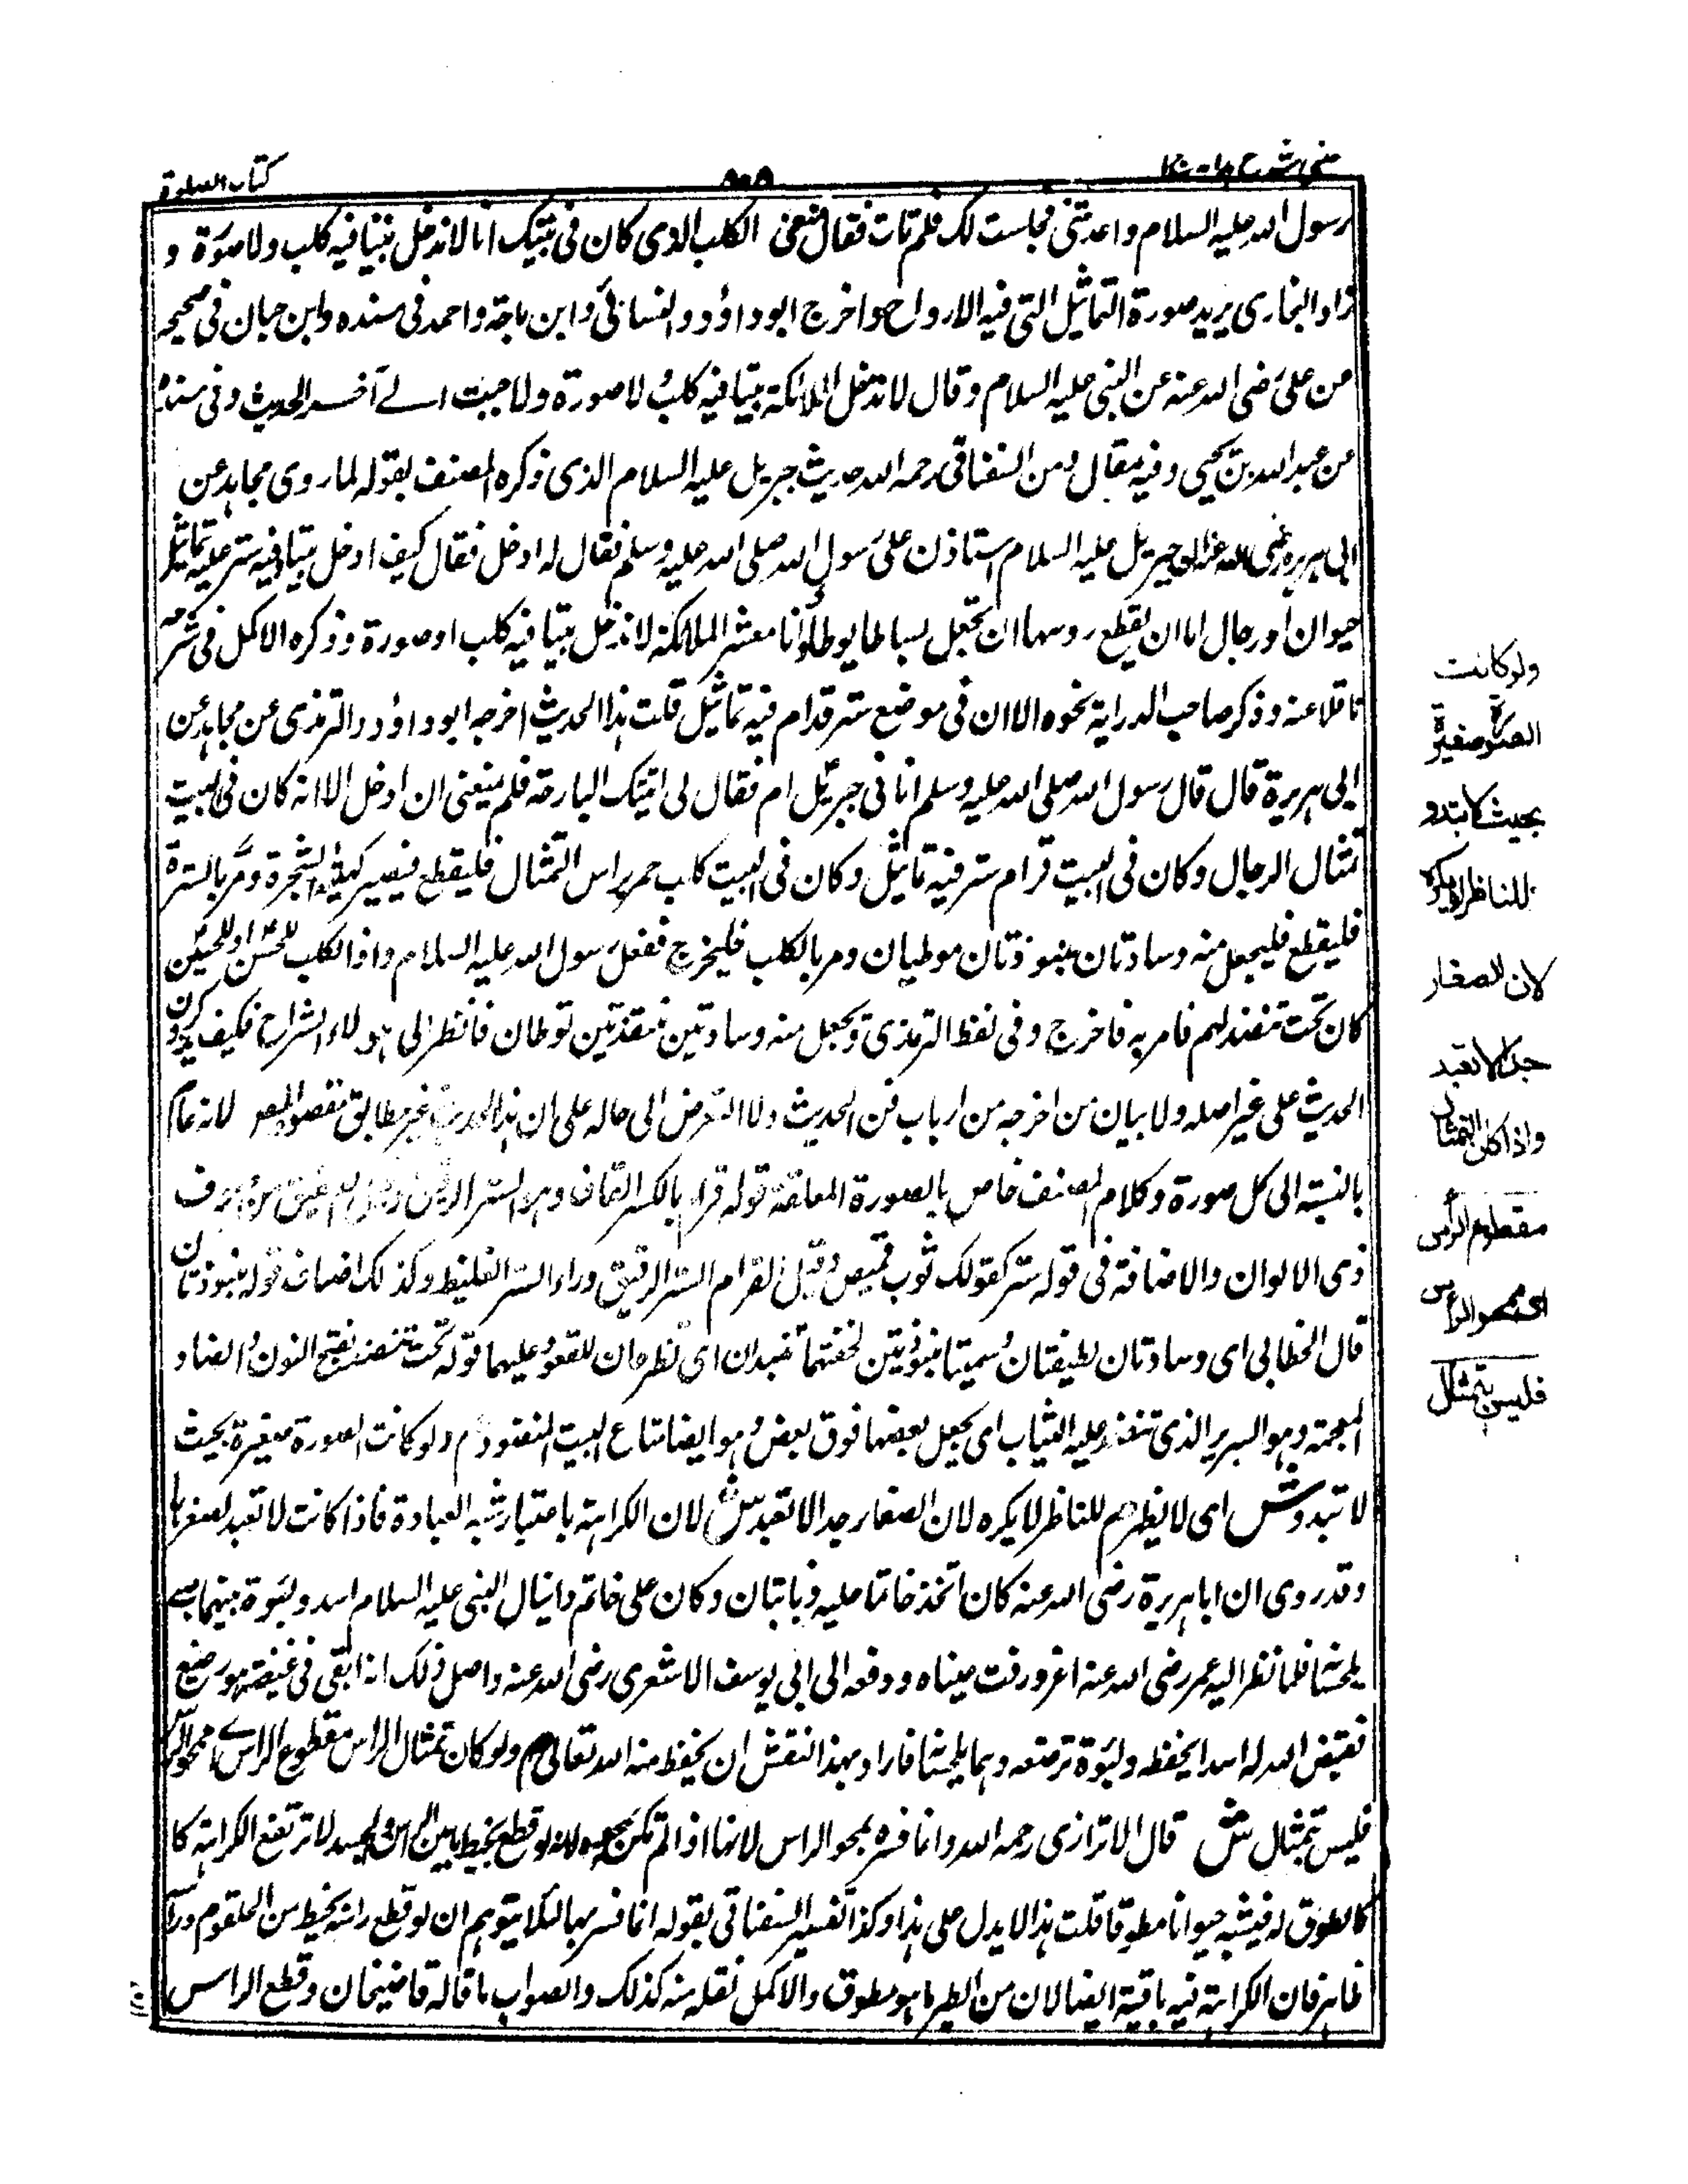 كتاب الصلوة
رسول الله عليه السلام واعدتني فجلست لك فلم تات فقال منعني الكلب الذي كان في بيتك انا لا ندخل بيتا فيه كلب ولا صورة و
زاد البخاري يريد صورة التماثيل التي فيه الارواح واخرج ابو داؤد والنسائي وابن ماجة واحمد في مسنده وابن حبان في صحيحه
من علي رضى الله عنه عن النبي عليه السلام وقال لا تدخل الملائكة بيتا فيه كلب ولا صورة ولا جنب الى آخر الحديث وفي سنده
من عبد الله بن يحيى وفيه مقال ومن السغناقي رحمه الله حديث جبريل عليه السلام الذي ذكره المصنف بقوله لما روى مجاهد عن
ابي هريرة رضى الله عنه ان جبريل عليه السلام استاذن على رسول الله صلى الله عليه وسلم فقال له ادخل فقال كيف ادخل بيتا وفيه ستر عليه تماثيل
حيوان او رجال اما ان يقطع روسها او ان تجعل بساطا يوطا وانا معشر الملائكة لا ندخل بيتا فيه كلب او صورة وذكره الاكمل في شرحه
ناقلا عنه وذكر صاحب الدراية نحوه الا ان في موضع ستر قدام فيه تماثيل قلت هذا الحديث اخرجه ابو داؤد والترمذي عن مجاهد عن
ابي هريرة قال قال رسول الله صلى الله عليه وسلم اتاني جبريل ام فقال لي اتيتك البارحة فلم يمنعني ان ادخل الا انه كان في البيت
تمثال الرجال وكان في البيت قرام ستر فيه تماثيل وكان في البيت كلب فمر براس التمثال فليقطع فيصير كهيئة الشجرة ومر بالسترة
فليقطع فليجعل منه وسادتان منبوذتان موطيان ومر بالكلب فليخرج ففعل رسول الله عليه السلام واذا الكلب للحسن او للحسين
كان تحت نضد لهم فامر به فاخرج وفي لفظ الترمذي ويجعل منه وسادتين منتبذتين توطان فانظر الى هولاء الشراح فكيف يذكرون
الحديث على غير اصله ولا بيان من اخرجه من ارباب فن الحديث ولا التعرض الى حاله على ان هذا الحديث غير مطابق مقصود المص لانه عام
بالنسبة الى كل صورة وكلام المصنف خاص بالصورة المعلقة قوله قرام بالكسر القاف وهو الستر الرقيق وقيل الصفيق من صوف
ذي الالوان والاضافة في قوله ستر كقولك ثوب قميص وقيل القرام الستر الرقيق وراء الستر الغليظ وكذلك اضاف قوله منبوذتان
قال الخطابي اى وسادتان لطيفتان وسميتا منبوذتين لخفتهما تنبذان اى تطرحان للقعود عليهما قوله تحت نضد بفتح النون والضاد
المعجمة وهو السرير الذي تنضد عليه الثياب اى يجعل بعضها فوق بعض وهو ايضا متاع البيت المنضود م ولو كانت الصورة صغيرة بحيث
لا تبدو ش اى لا يظهر م للناظر لا يكره لان الصغار جدا لا تعبد ش لان الكراهة باعتبار شبه العبادة فاذا كانت لا تعبد لصغرها
وقد روى ان ابا هريرة رضى الله عنه كان اتخذ خاتما عليه ذبابتان وكان على خاتم دانيال النبي عليه السلام اسد ولبوة بينهما صبي
يلحسانه فلما نظر اليه عمر رضى الله عنه اغرورقت عيناه ودفعه الى ابي يوسف الاشعري رضى الله عنه واصل ذلك انه ابقى في غيضة وهو رضيع
فقيض الله له اسدا يحفظه ولبوة ترضعه وهما يلحسانه فاراد بهذا النقش ان يحفظ منة الله تعالى م ولو كان تمثال الراس مقطوع الراس اى ممحو الراس
فليس بتمثال ش قال الاترازي رحمه الله وانما فسره بمحو الراس لانها اذا لم تكن ممحوة لانه لو قطع بخيط ما بين الراس والجسد لا ترتفع الكراهة كا
كالطوق له فيشبه حيوانا مطوقا قلت هذا لا يدل على هذا وكذا تفسير السغناقي بقوله انما فسر بها لئلا يتوهم ان لو قطع راسه بخيط من الحلقوم وراسه
ظاهر فان الكراهة فيه باقية ايضا لان من الطير ما هو مطوق والاكمل نقله منه كذلك والصواب ما قاله قاضيخان وقطع الراس
ولو كانت
الصورة صغيرة
بحيث لا تبدو
للناظر لا يكره
لان الصغار
جدا لا تعبد
واذا كان التمثال
مقطوع الراس
اى ممحو الراس
فليس بتمثال